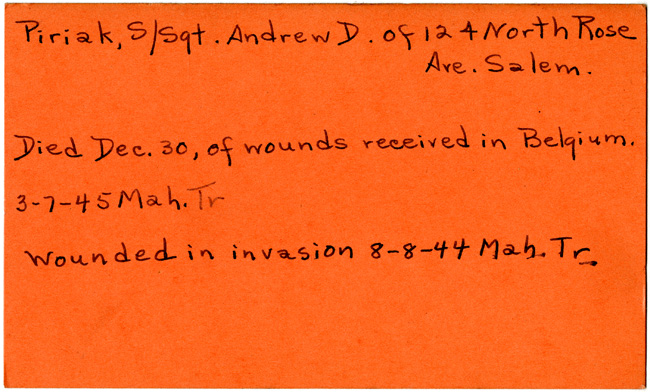 Piriak, S/Sgt. Andrew D. of 124 North Rose
Ave. Salem.
Died Dec. 30, of wounds received in Belgium.
3-7-45 Mah. Tr
Wounded in invasion 8-8-44 Mah. Tr.